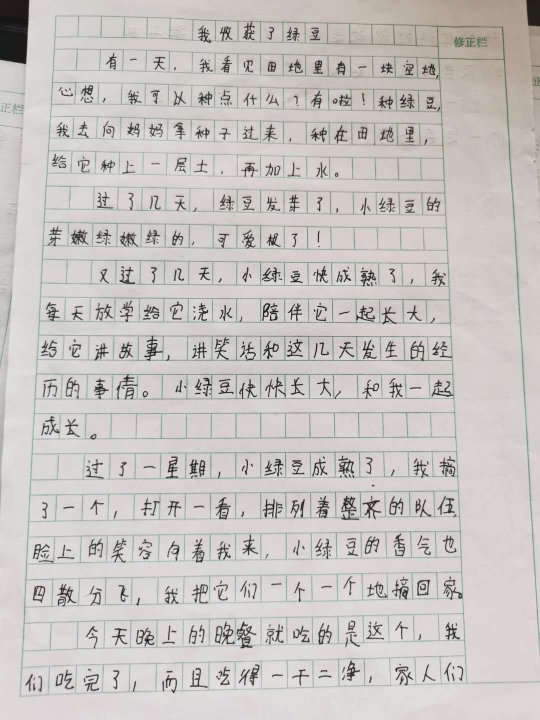 我收获了绿豆
修正栏
正栏
有一天，我看见田地里有一块空地，
心想，我可以种点什么？有啦！种绿豆，
我去向妈妈拿种子过来，种在田地里，
给它种上一层土，再加上水。
过了几天，绿豆发芽了，小绿豆的
芽嫩绿嫩绿的，可爱极了！
又过了几天，小绿豆快成熟了，我
每天放学给它浇水，陪伴它一起长大，
给它讲故事，讲笑话和这几天发生的经
历的事情。小绿豆快快长大，和我一起
成长。
过了一星期，小绿豆成熟了，我摘
了一个，打开一看，排列着整齐的队伍，
脸上的笑容向着我来，小绿豆的香气也
四散分飞，我把它们一个一个地摘回家。
今天晚上的晚餐就吃的是这个，我
们吃完了，而且吃得一干二净，家人们